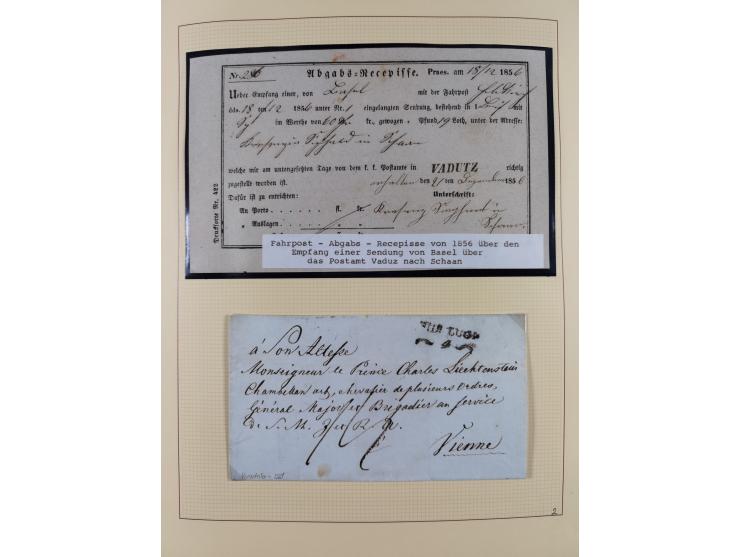 Nr. 286 Abgabs-Recepisse. Praes. am 18/12 1856
Ueber Empfang einer, von Basel mit der Fahrpost
ddo. 18 ten 12 1856 unter Nr. 1 eingelangten Sendung, bestehend in mit
im Werthe von 60 kr., gewogen Pfund 19 Loth, unter der Adresse:
in Schaan
welche mir am untengesetzten Tage von dem k. k. Postamte in VADUTZ richtig
zugestellt worden ist. erhalten den 21 ten Dezember 1856
Dafür ist zu entrichten: Unterschrift:
An Porto . . . . . . fl. kr.
„ Auslagen . . . . Schaan
Druckforte Nr. 422
Fahrpost - Abgabs - Recepisse von 1856 über den
Empfang einer Sendung von Basel über
das Postamt Vaduz nach Schaan
á Son Altesse
Monseigneur le Prince Charles Liechtenstein
Chambellan act, chevalier de plusieurs Ordres,
Général Major et Brigadier au service
de S. M. J. et R. A.
Vienne
2